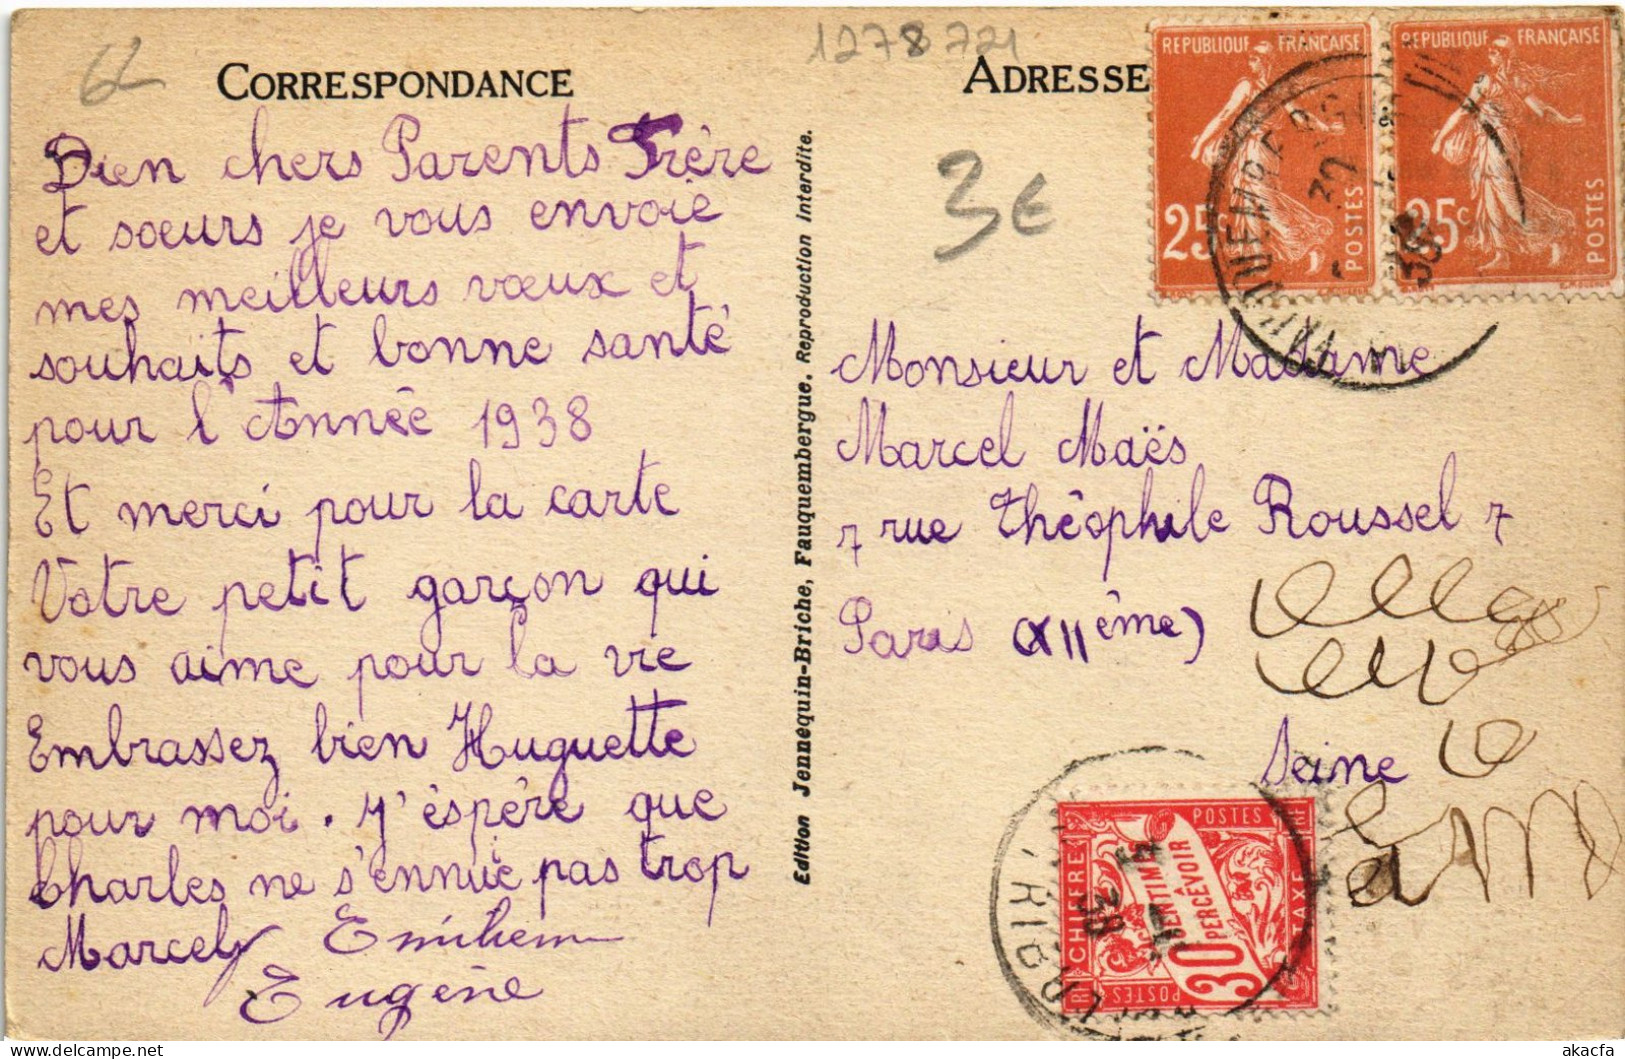 62
1278721
CORRESPONDANCE
Bien chers Parents Frère
et soeurs je vous envoie
mes meilleurs vœux et
souhaits et bonne santé
pour l'Année 1938
Et merci pour la carte
Votre petit garçon qui
vous aime pour la vie
Embrassez bien Huguette
pour moi. J'éspère que
Charles ne s'ennuie pas trop
Marcel
Eugène
Edition Jennequin-Briche, Fauquembergue. Reproduction interdite.
ADRESSE
3€
REPUBLIQUE FRANÇAISE
25c
POSTES
REPUBLIQUE FRANÇAISE
25c
POSTES
FAUQUEMBERGUES
38
Monsieur et Madame
Marcel Maës
7 rue Théophile Roussel 7
Paris (XIIème)
Seine
CHIFFRE
POSTES
30 CENTIMES
A
PERCEVOIR
30
TAXE
POSTES
38
akacfa